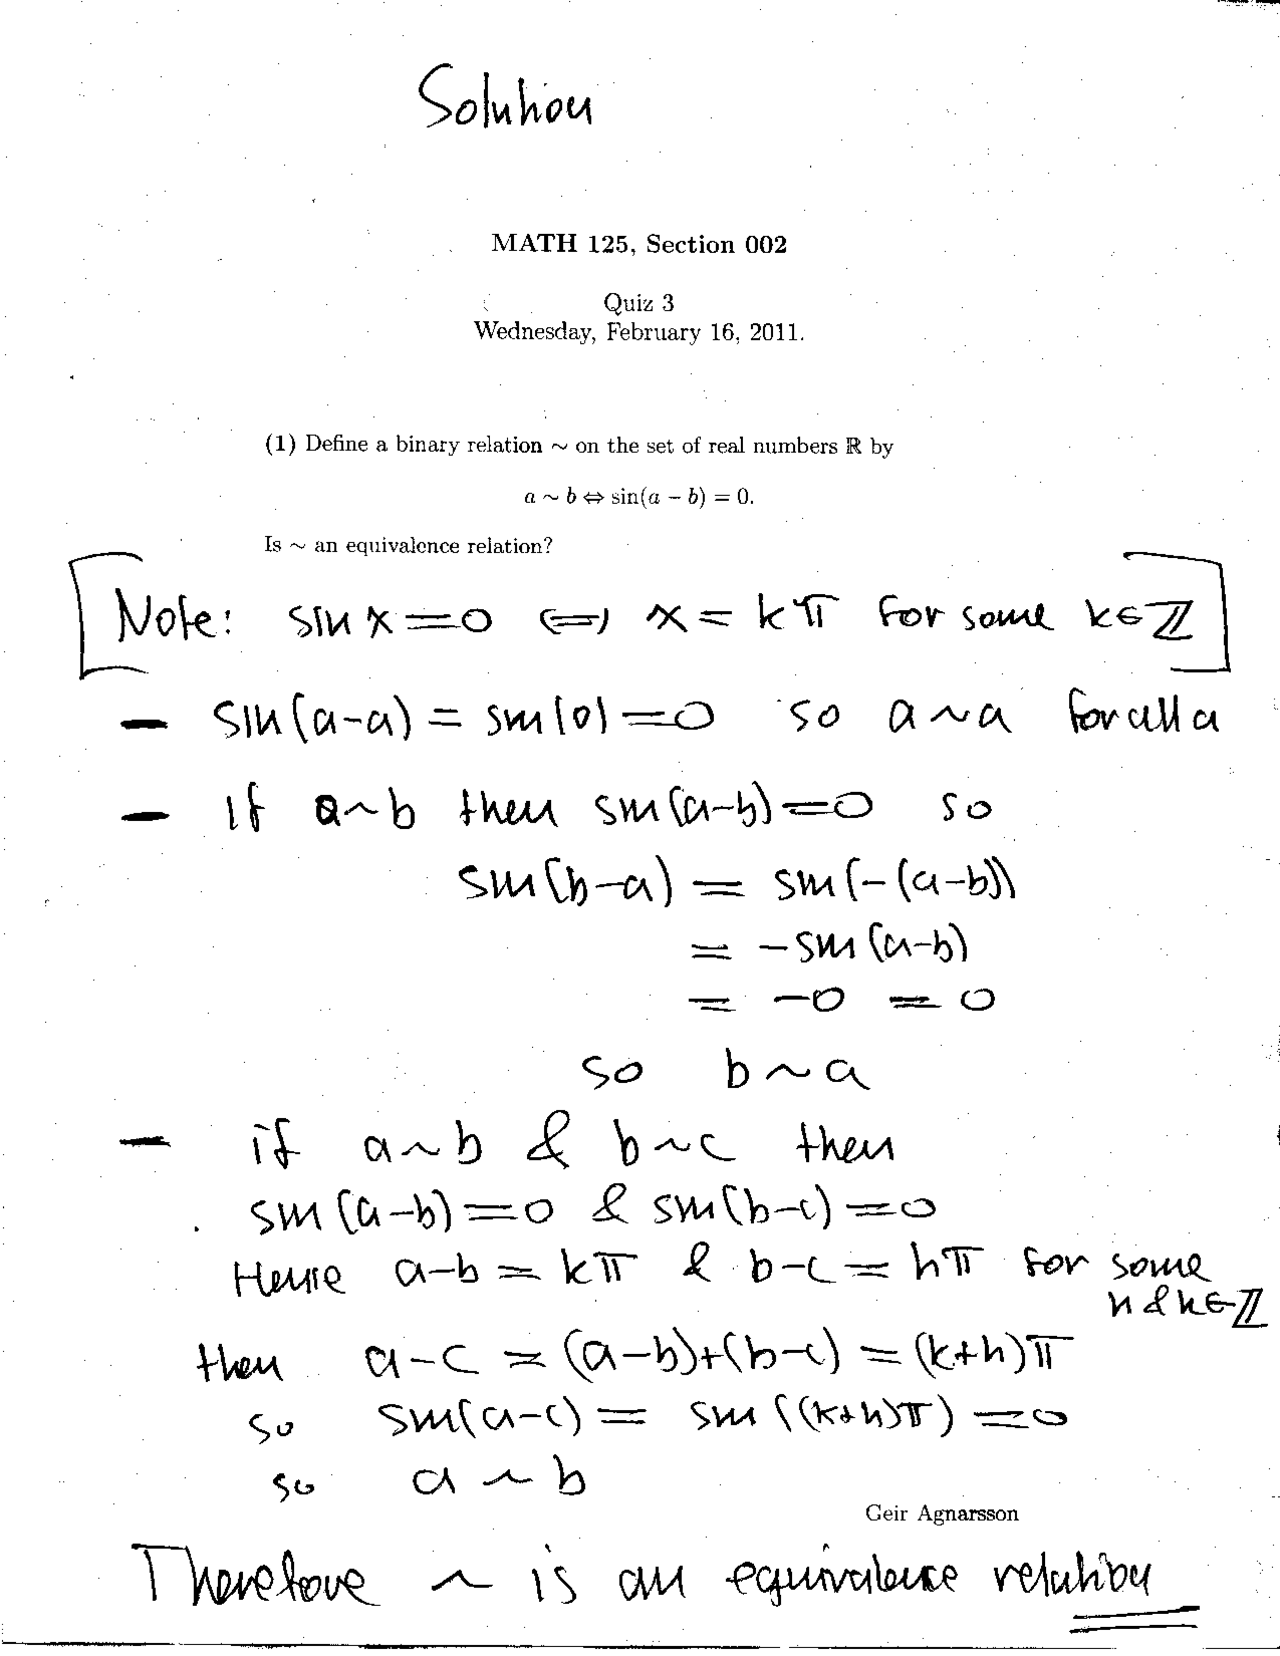 Solution
MATH 125, Section 002
Quiz 3
Wednesday, February 16, 2011.
(1) Define a binary relation ~ on the set of real numbers ℝ by
a ~ b ⇔ sin(a − b) = 0.
Is ~ an equivalence relation?
[Note: sin x = 0 ⇔ x = kπ for some k∈ℤ]
− sin(a−a) = sin(0) = 0 so a~a for all a
− If a~b then sin(a−b) = 0 so
sin(b−a) = sin(−(a−b))
= −sin(a−b)
= −0 = 0
so b~a
− if a~b & b~c then
sin(a−b) = 0 & sin(b−c) = 0
Hence a−b = kπ & b−c = hπ for some
h & k∈ℤ
then a−c = (a−b)+(b−c) = (k+h)π
so sin(a−c) = sin((k+h)π) = 0
so a~b
Geir Agnarsson
Therefore ~ is an equivalence relation